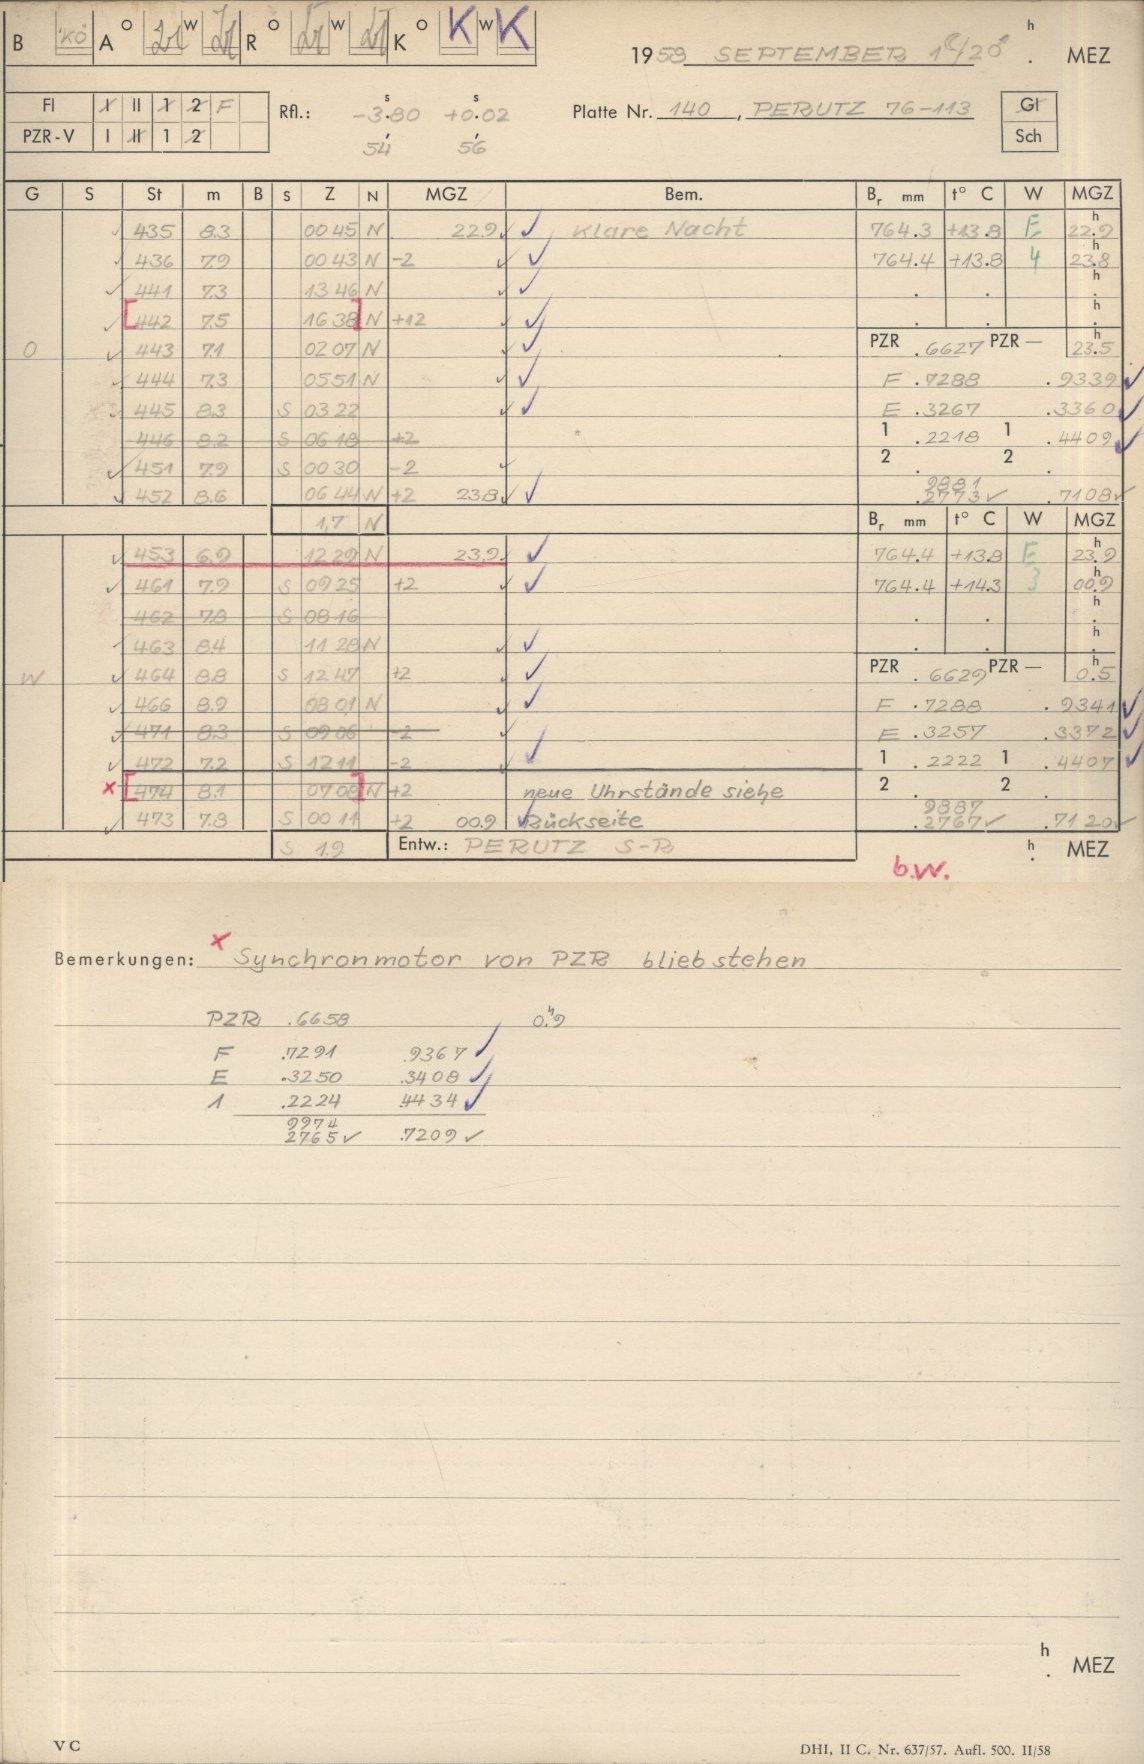 B Kö A O W R O W K O K W K
1958 SEPTEMBER h MEZ
FI I II 1 2 F
PZR-V I II 1 2
Rfl.: -3.80 s +0.02 s
54 56
Platte Nr. 140, PERUTZ 76-113
Gl
Sch
G S St m B S Z N MGZ Bem. Br mm t° C W MGZ
435 8.3 00 45 N 22.9 Klare Nacht 764.3 +13.8 E 22.9 h
436 7.9 00 43 N -2 764.4 +13.8 4 23.8 h
441 7.3 13 46 N h
442 7.5 16 38 N +12 h
O 443 7.1 02 07 N PZR .6627 PZR — 23.5 h
444 7.3 05 51 N F .7288 .9339
445 8.3 S 03 22 E .3267 .3360
446 8.2 S 06 18 +2 1 .2218 1 .4409
451 7.9 S 00 30 -2 2 . 2 .
452 8.6 06 44 N +2 23.8 9881
.2773 .7108
1,7 N Br mm t° C W MGZ
453 6.9 12 29 N 23.9 764.4 +13.8 E 23.9 h
461 7.9 S 09 25 +2 764.4 +14.3 3 00.9 h
462 7.8 S 08 16 h
463 8.4 11 28 N h
W 464 8.8 S 12 47 +2 PZR .6629 PZR — 0.5 h
466 8.9 08 01 N F .7288 .9341
471 8.3 S 09 06 -2 E .3257 .3372
472 7.2 S 12 11 -2 1 .2222 1 .4407
x 474 8.1 07 08 N +2 neue Uhrstände siehe 2 . 2 .
473 7.8 S 00 11 +2 00.9 Rückseite 9887
.2767 .7120
S 1.9 Entw.: PERUTZ S-R h MEZ
b.w.
Bemerkungen: x Synchronmotor von PZR blieb stehen
PZR .6658 0.9 h
F .7291 .9367
E .3250 .3408
1 .2224 .4434
9974
2765 .7209
h MEZ
V C
DHI, II C. Nr. 637/57. Aufl. 500. II/58